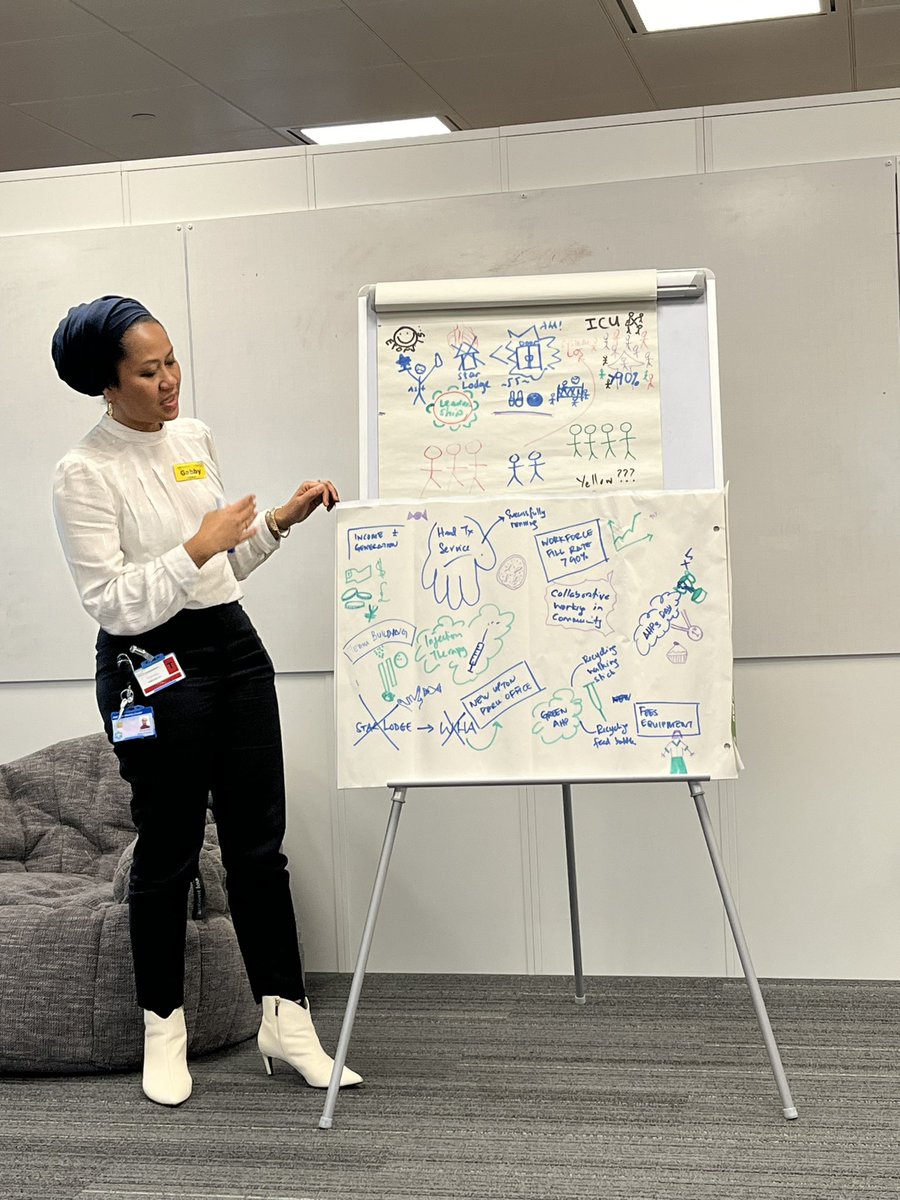 Gabby
ICU
AM!
Star
Lodge
~55~
Los
>90%
Leader
Ship
Yellow???
Income ±
Generation
Hand Tx
Service
Successfully
running
WORKFORCE
FILL RATE
>90%
Collaborative
working in
Community
AHPs DAY
BUILDING
Injection
Therapy
NEW UPTON
PARK OFFICE
STAR LODGE → WHA
Recycling
walking
stick
GREEN
AHP
Recycling
feed bottle
NEW
FEES
EQUIPMENT